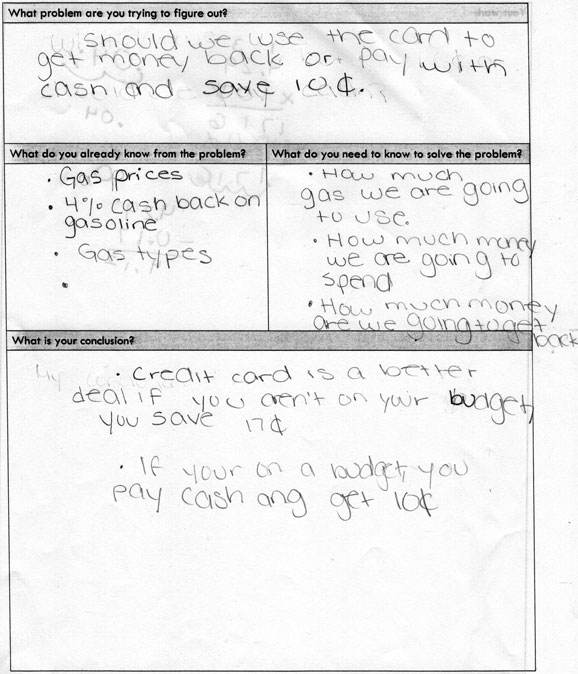 What problem are you trying to figure out?
should we use the card to
get money back or pay with
cash and save 10¢.
What do you already know from the problem?
• Gas prices
• 4% cash back on
gasoline
• Gas types
•
What do you need to know to solve the problem?
• How much
gas we are going
to use.
• How much money
we are going to
spend
• How much money
are we going to get
back
What is your conclusion?
• Credit card is a better
deal if you aren't on your budget,
you save 17¢
• If your on a budget, you
pay cash ang get 10¢